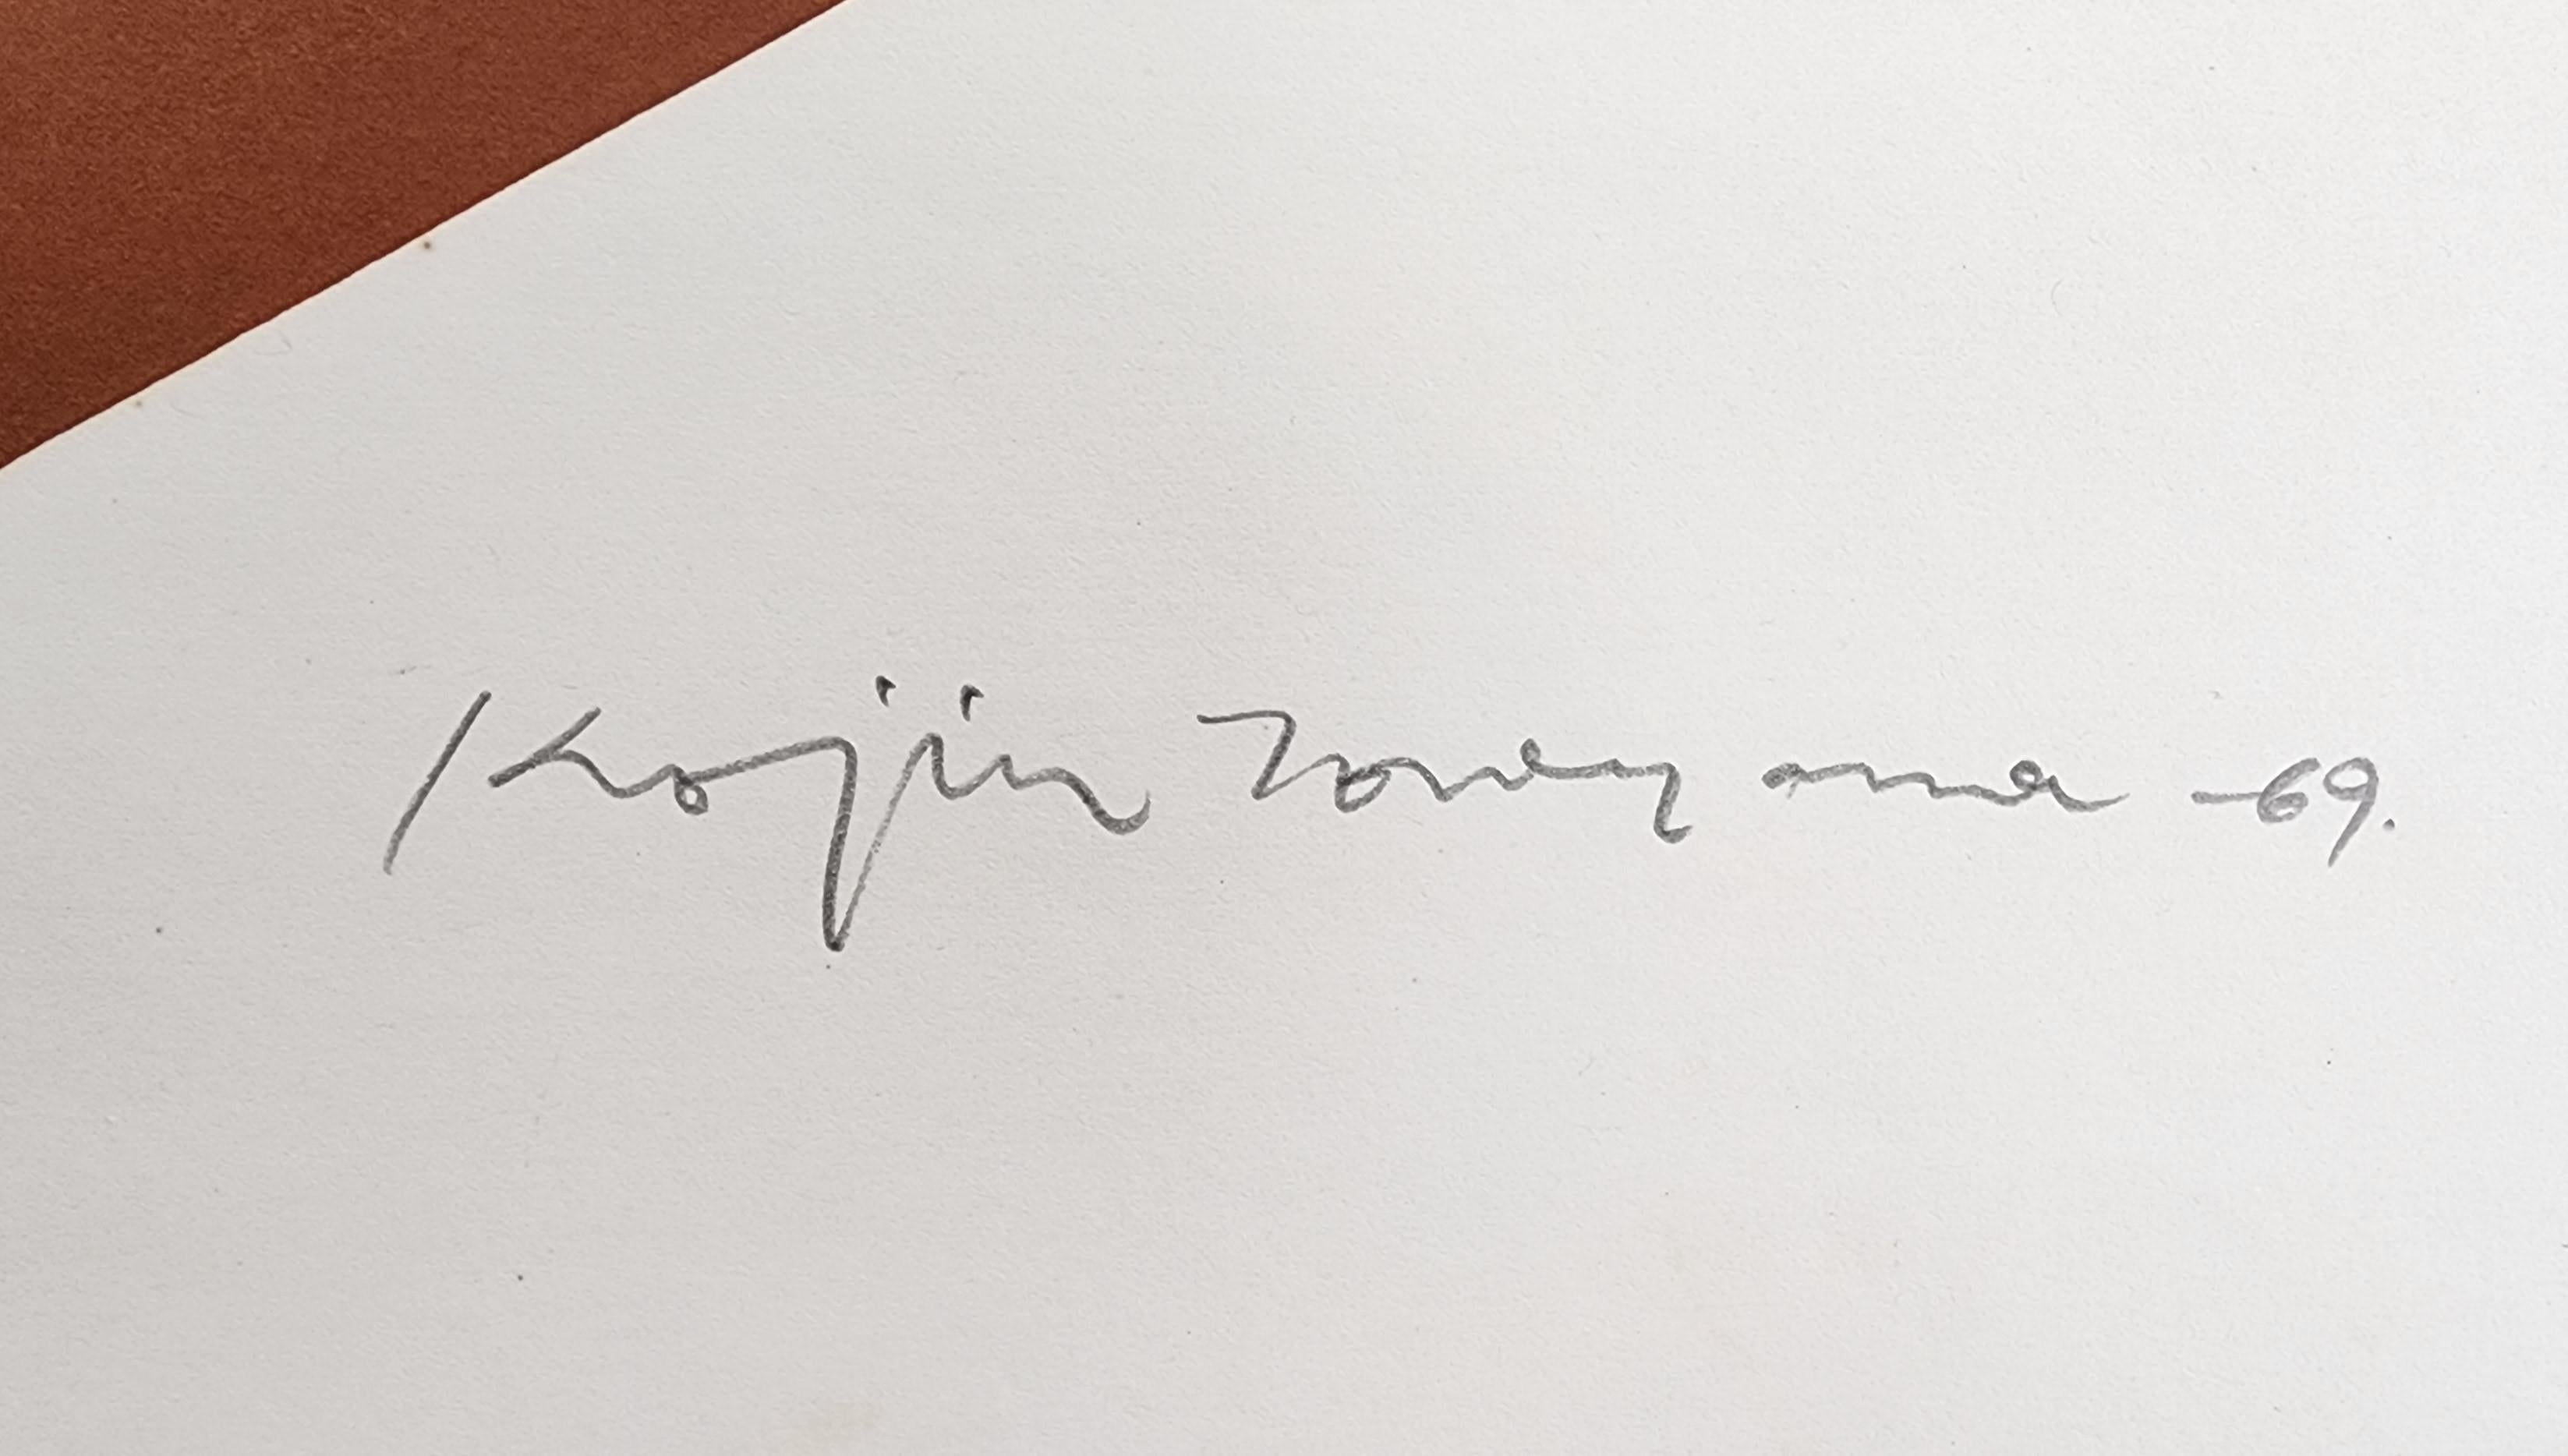 Kojin Toneyama -69.